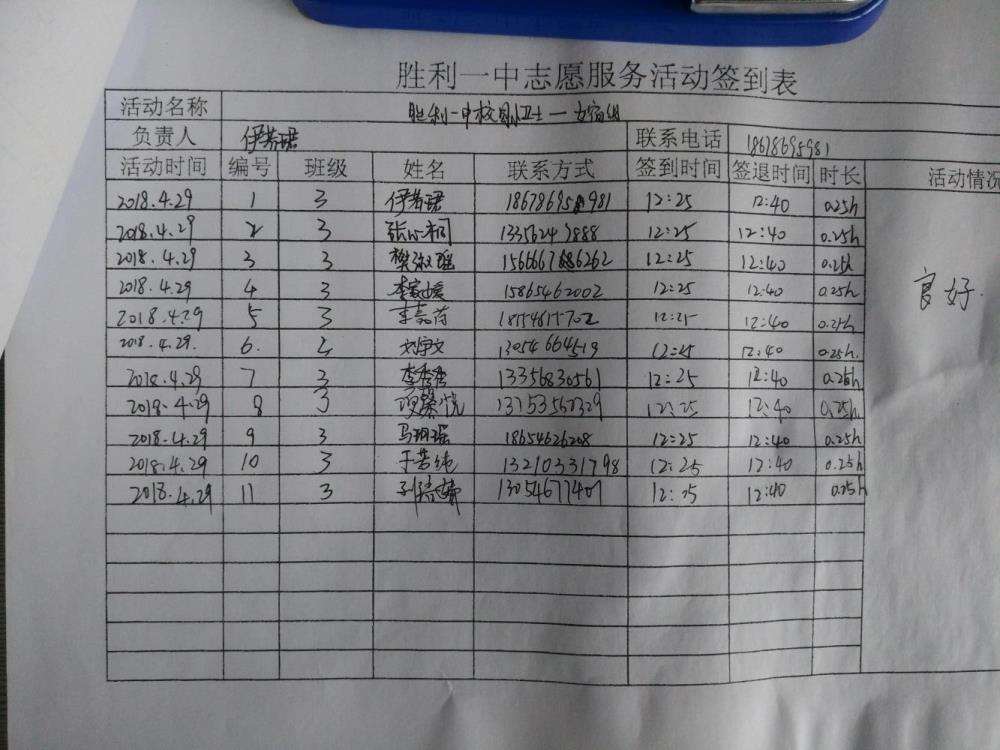 胜利一中志愿服务活动签到表
活动名称 胜利一中校园卫士一女宿组
负责人 伊芳珺 联系电话 18678695981
活动时间 编号 班级 姓名 联系方式 签到时间 签退时间 时长 活动情况
2018.4.29 1 3 伊芳珺 18678695981 12:25 12:40 0.25h
2018.4.29 2 3 12:25 12:40 0.25h
2018.4.29 3 3 12:25 12:40 0.25h
良好.
2018.4.29 4 3 15865462002 12:25 12:40 0.25h
2018.4.29 5 3 12:25 12:40 0.25h
2018.4.29. 6. 刘宇文 13054664519 12:25 12:40 0.25h.
2018.4.29 7 3 13356830561 12:25 12:40 0.25h
2018.4.29 8 3 12:25 12:40 0.25h
2018.4.29 9 3 18654626208 12:25 12:40 0.25h
2018.4.29 10 3 13210331798 12:25 12:40 0.25h
2018.4.29 11 3 13054677407 12:25 12:40 0.25h